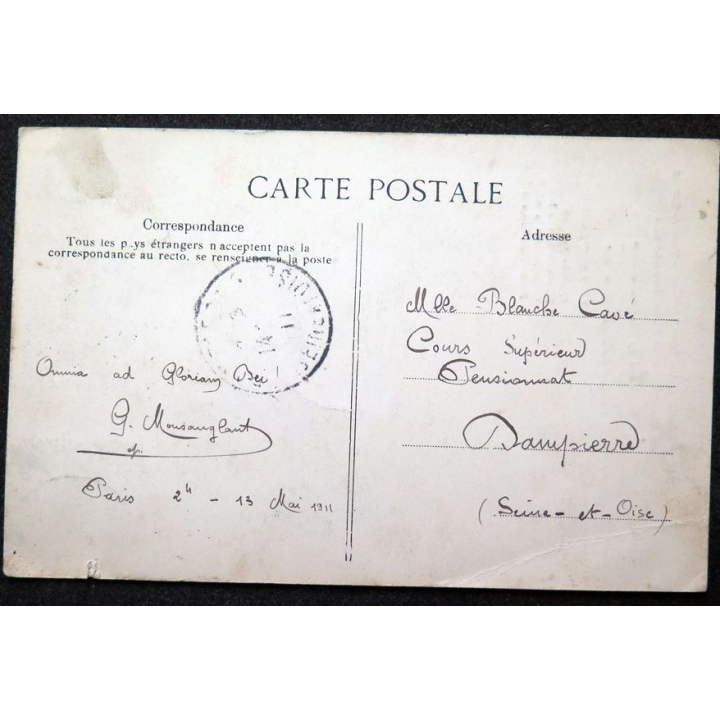 CARTE POSTALE
Correspondance
Tous les p..ys étrangers n'acceptent pas la
correspondance au recto. se renseigner à la poste
Omnia ad Gloriam Dei!
G. Monsanglant
op.
Paris 2h - 13 Mai 1911
Adresse
Mlle Blanche Cavé
Cours Supérieur
Pensionnat
Dampierre
(Seine-et-Oise)